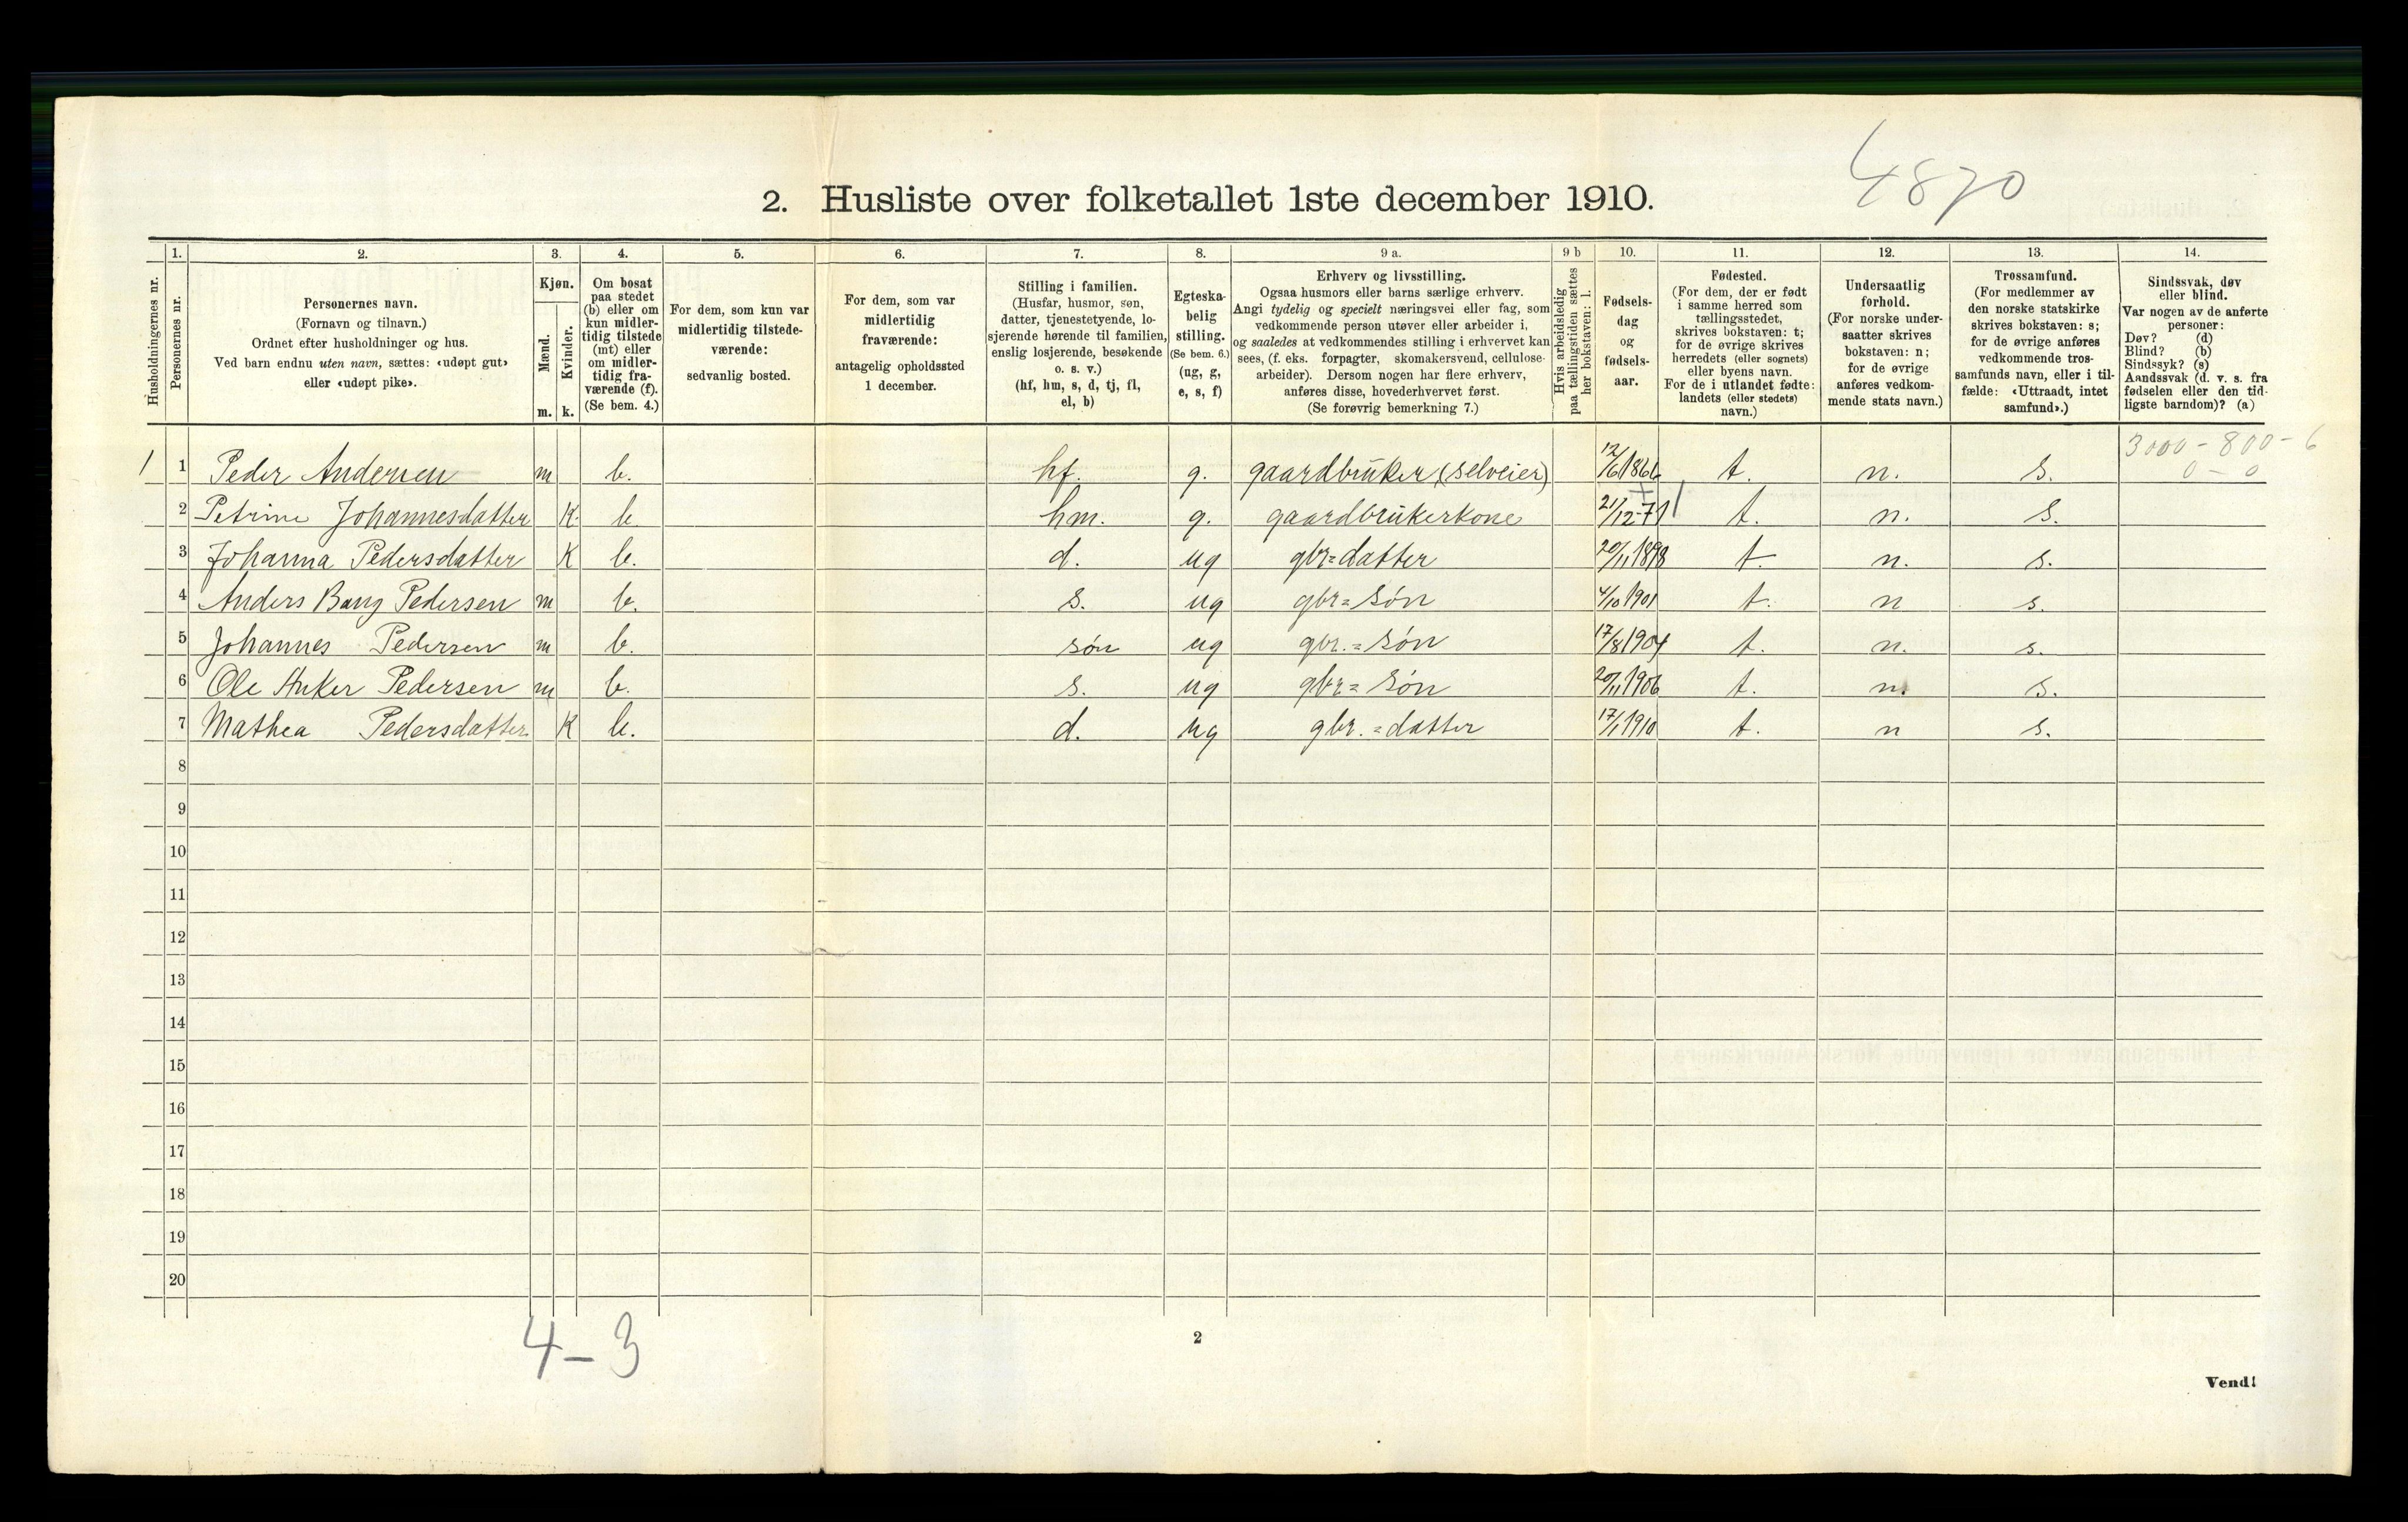 4870
2. Husliste over folketallet 1ste december 1910.
Husholdningernes nr.
1. Personernes nr.
2.
Personernes navn.
(Fornavn og tilnavn.)
Ordnet efter husholdninger og hus.
Ved barn endnu uten navn, sættes: «udøpt gut»
eller «udøpt pike».
3.
Kjøn.
Mænd. m.
Kvinder. k.
4.
Om bosat
paa stedet
(b) eller om
kun midler-
tidig tilstede
(mt) eller
om midler-
tidig fra-
værende (f).
(Se bem. 4.)
5.
For dem, som kun var
midlertidig tilstede-
værende:
sedvanlig bosted.
6.
For dem, som var
midlertidig
fraværende:
antagelig opholdssted
1 december.
7.
Stilling i familien.
(Husfar, husmor, søn,
datter, tjenestetyende, lo-
sjerende hørende til familien,
enslig losjerende, besøkende
o. s. v.)
(hf, hm, s, d, tj, fl,
el, b)
8.
Egteska-
belig
stilling.
(Se bem. 6.)
(ug, g,
e, s, f)
9 a.
Erhverv og livsstilling.
Ogsaa husmors eller barns særlige erhverv.
Angi tydelig og specielt næringsvei eller fag, som
vedkommende person utøver eller arbeider i,
og saaledes at vedkommendes stilling i erhvervet kan
sees, (f. eks. forpagter, skomakersvend, cellulose-
arbeider). Dersom nogen har flere erhverv,
anføres disse, hovederhvervet først.
(Se forøvrig bemerkning 7.)
9 b
Hvis arbeidsledig
paa tællingstiden sættes
her bokstaven: l.
10.
Fødsels-
dag
og
fødsels-
aar.
11.
Fødested.
(For dem, der er født
i samme herred som
tællingsstedet,
skrives bokstaven: t;
for de øvrige skrives
herredets (eller sognets)
eller byens navn.
For de i utlandet fødte:
landets (eller stedets)
navn.)
12.
Undersaatlig
forhold.
(For norske under-
saatter skrives
bokstaven: n;
for de øvrige
anføres vedkom-
mende stats navn.)
13.
Trossamfund.
(For medlemmer av
den norske statskirke
skrives bokstaven: s;
for de øvrige anføres
vedkommende tros-
samfunds navn, eller i til-
fælde: «Uttraadt, intet
samfund».)
14.
Sindssvak, døv
eller blind.
Var nogen av de anførte
personer:
Døv? (d)
Blind? (b)
Sindssyk? (s)
Aandssvak (d. v. s. fra
fødselen eller den tid-
ligste barndom)? (a)
3000 - 800 - 6
0 - 0
1 1 Peder Andersen m b. hf. g. gaardbruker (selveier) 12/6 1866 t. n. s.
2 Petrine Johannesdatter K. b. hm. g. gaardbrukerkone 21/12-71 t. n. s.
3 Johanna Pedersdatter K b. d. ug gbr=datter 20/11 1898 t. n. s.
4 Anders Bang Pedersen m b. s. ug gbr=søn 4/10 1901 t. n s.
5 Johannes Pedersen m b. søn ug gbr.=søn 17/8 1904 t. n. s.
6 Ole Anker Pedersen m b. s. ug gbr=søn 20/11 1906 t. n. s.
7 Mathea Pedersdatter K b. d. ug gbr.=datter 17/1 1910 t. n s.
8
9
10
11
12
13
14
15
16
17
18
19
20
4-3
2
Vend!